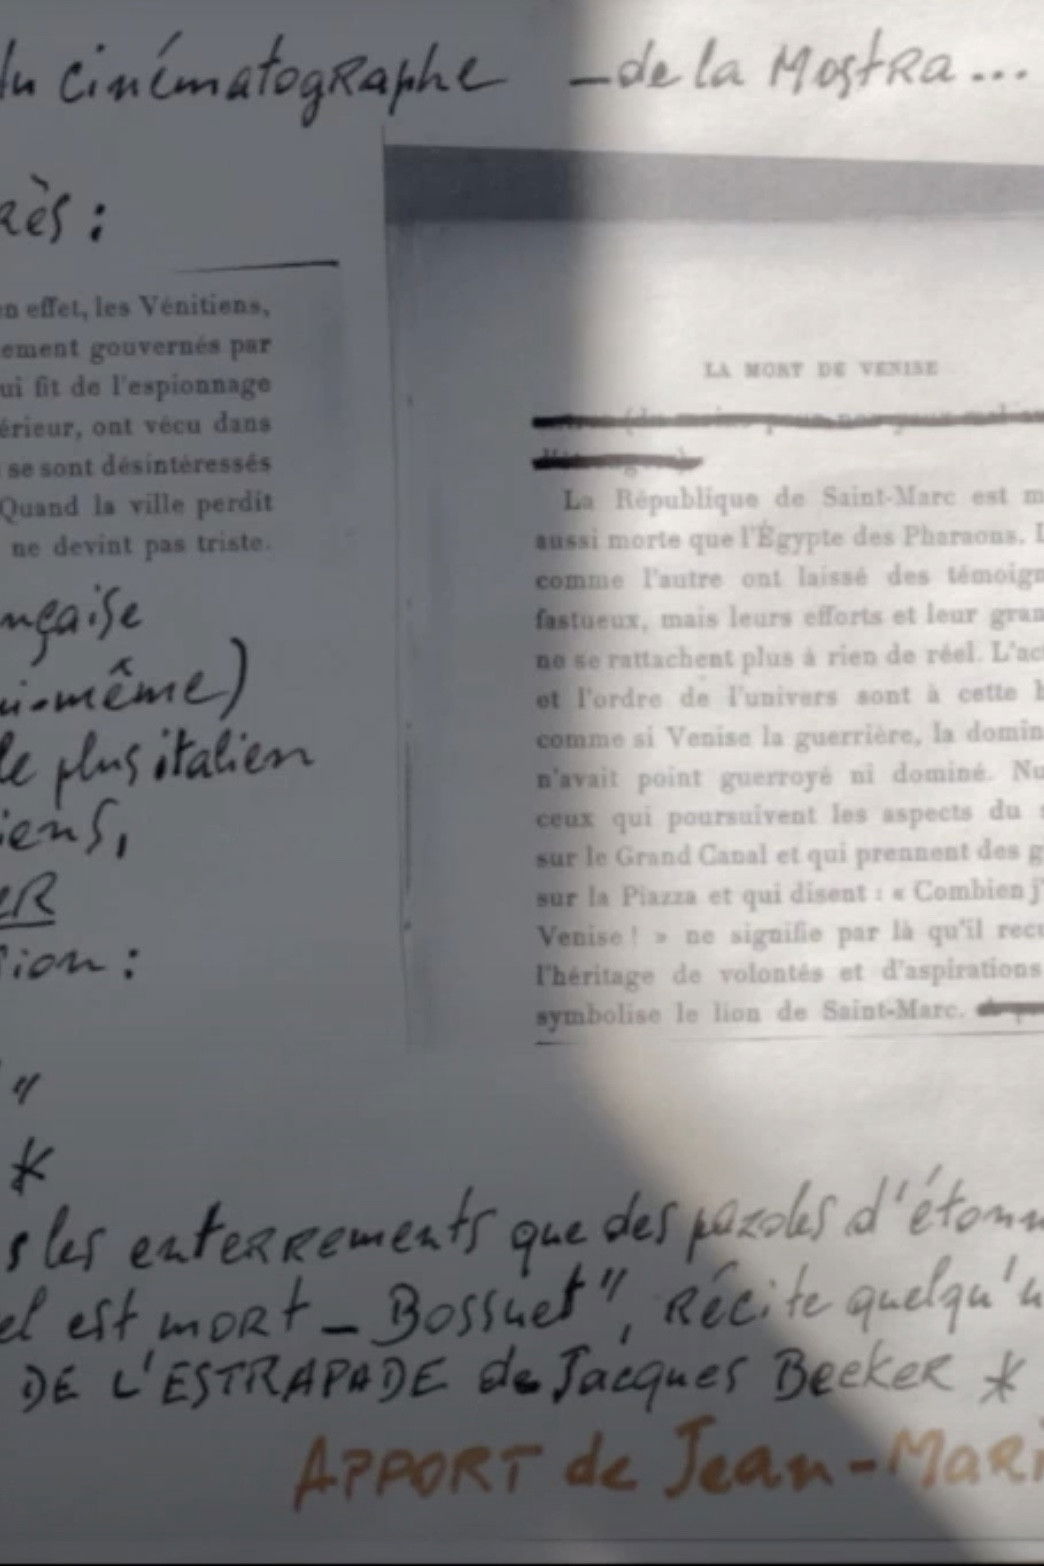 du cinématographe — de la Mostra...
rès :
en effet, les Vénitiens,
ement gouvernés par
ui fit de l'espionnage
érieur, ont vécu dans
se sont désintéressés
Quand la ville perdit
ne devint pas triste.
nçaise
ui-même)
le plus italien
iens,
ER
sion :
"
*
LA MORT DE VENISE
La République de Saint-Marc est m
aussi morte que l'Égypte des Pharaons. L
comme l'autre ont laissé des témoign
fastueux, mais leurs efforts et leur gran
ne se rattachent plus à rien de réel. L'act
et l'ordre de l'univers sont à cette h
comme si Venise la guerrière, la domin
n'avait point guerroyé ni dominé. Nu
ceux qui poursuivent les aspects du s
sur le Grand Canal et qui prennent des g
sur la Piazza et qui disent : « Combien j'
Venise ! » ne signifie par là qu'il recu
l'héritage de volontés et d'aspirations
symbolise le lion de Saint-Marc.
s les enterrements que des paroles d'étonn
el est mort — Bossuet", Récite quelqu'u
DE L'ESTRAPADE de Jacques Becker *
APPORT de Jean-Mari